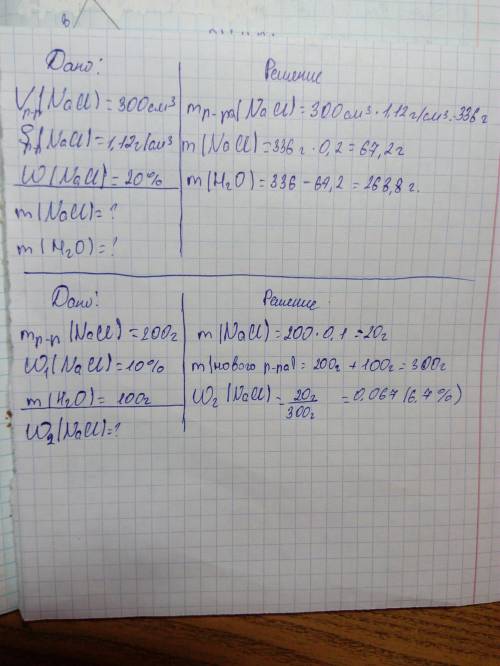 Дано:
V р-р (NaCl) = 300 см³
ρ р-р (NaCl) = 1,12 г/см³
ω (NaCl) = 20%
m (NaCl) = ?
m (H₂O) = ?
Решение
m р-ра (NaCl) = 300 см³ · 1,12 г/см³ = 336 г
m (NaCl) = 336 г · 0,2 = 67,2 г
m (H₂O) = 336 – 67,2 = 268,8 г.
Дано:
m р-р (NaCl) = 200г
ω₁ (NaCl) = 10%
m (H₂O) = 100г
ω₂ (NaCl) = ?
Решение
m (NaCl) = 200 · 0,1 = 20г
m (нового р-ра) = 200г + 100г = 300г
ω₂ (NaCl) = 20г/300г = 0,067 (6,7%)